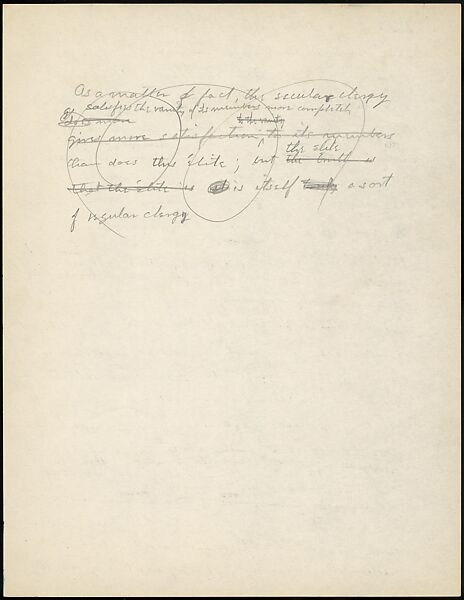 As a matter of fact, the secular clergy
satisfys the vanity of its members more completely
gives more satisfaction, to its members
to the vanity
than does this élite; but the truth is
this élite
that the élite is is itself a sort
of regular clergy